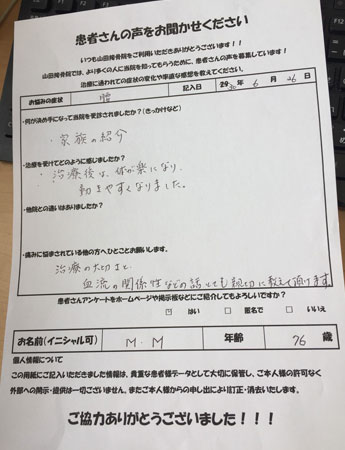 患者さんの声をお聞かせください
いつも山田接骨院をご利用いただきありがとうございます！！
山田接骨院では、より多くの人に当院を知ってもらうために、患者さんの声を募集しています！
治療に通われての症状の変化や率直な感想を教えてください。
お悩みの症状 腰 記入日 30年 6月 26日
・何が決め手になって当院を受診されましたか？（きっかけなど）
・家族の紹介
・治療を受けてどのように感じましたか？
・治療後は、体が楽になり、
動きやすくなりました。
・他院との違いはありましたか？
・痛みに悩まされている他の方へひとことお願いします。
治療の大切さと
血流の関係性などの話とても親切に教えて頂けます
患者さんアンケートをホームページや掲示板などにご紹介してもよろしいですか？
はい □ 匿名で □ いいえ
お名前（イニシャル可） M.M 年齢 76 歳
個人情報について
この用紙にご記入いただきました情報は、貴重な患者様データとして大切に保管し、ご本人様の許可なく
外部への開示・提供は一切ございません。またご本人様からの申し出により訂正・消去いたします。
ご協力ありがとうございました！！！